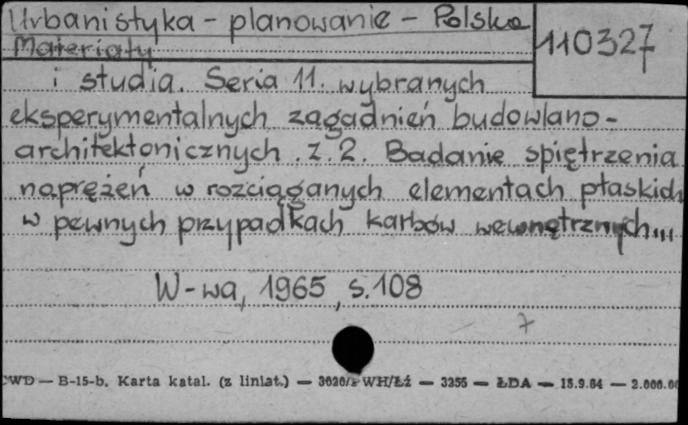 Urbanistyka - planowanie - Polska
110327
Materiały
i studia. Seria 11. wybranych
eksperymentalnych zagadnień budowlano-
architektonicznych. z. 2. Badanie spiętrzenia
naprężeń w rozciąganych elementach płaskich
w pewnych przypadkach karbów wewnętrznych...
W-wa, 1965, s. 108
7
CWD — B-15-b. Karta katal. (z liniat.) — WH/Łź — 3255 — ŁDA — 15.9.64 — 2.000.00